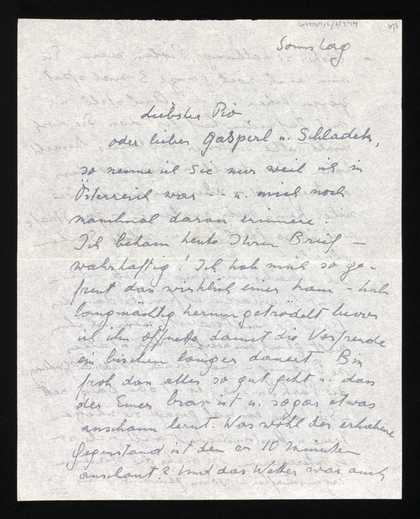 Sonntag
Liebster Pio,
oder lieber Gasperl u. Schladek,
so nenne ich Sie nur weil ich in
Österreich war — u. mich noch
manchmal daran erinnere!
Ich bekam heute Ihren Brief —
wahrhaftig! Ich hab mich so ge-
freut das wirklich einer kam — hab
langmächtig herumgetrödelt bevor
ich ihn öffnete, damit die Vorfreude
ein bischen länger dauert. Bin
froh dan alles so gut geht u. dass
der Emes brav ist u. sogar etwas
anschaun lernt. Was wohl der erhabene
Gegenstand ist den er 10 Minuten
anschaut? Und das Wetter war auch